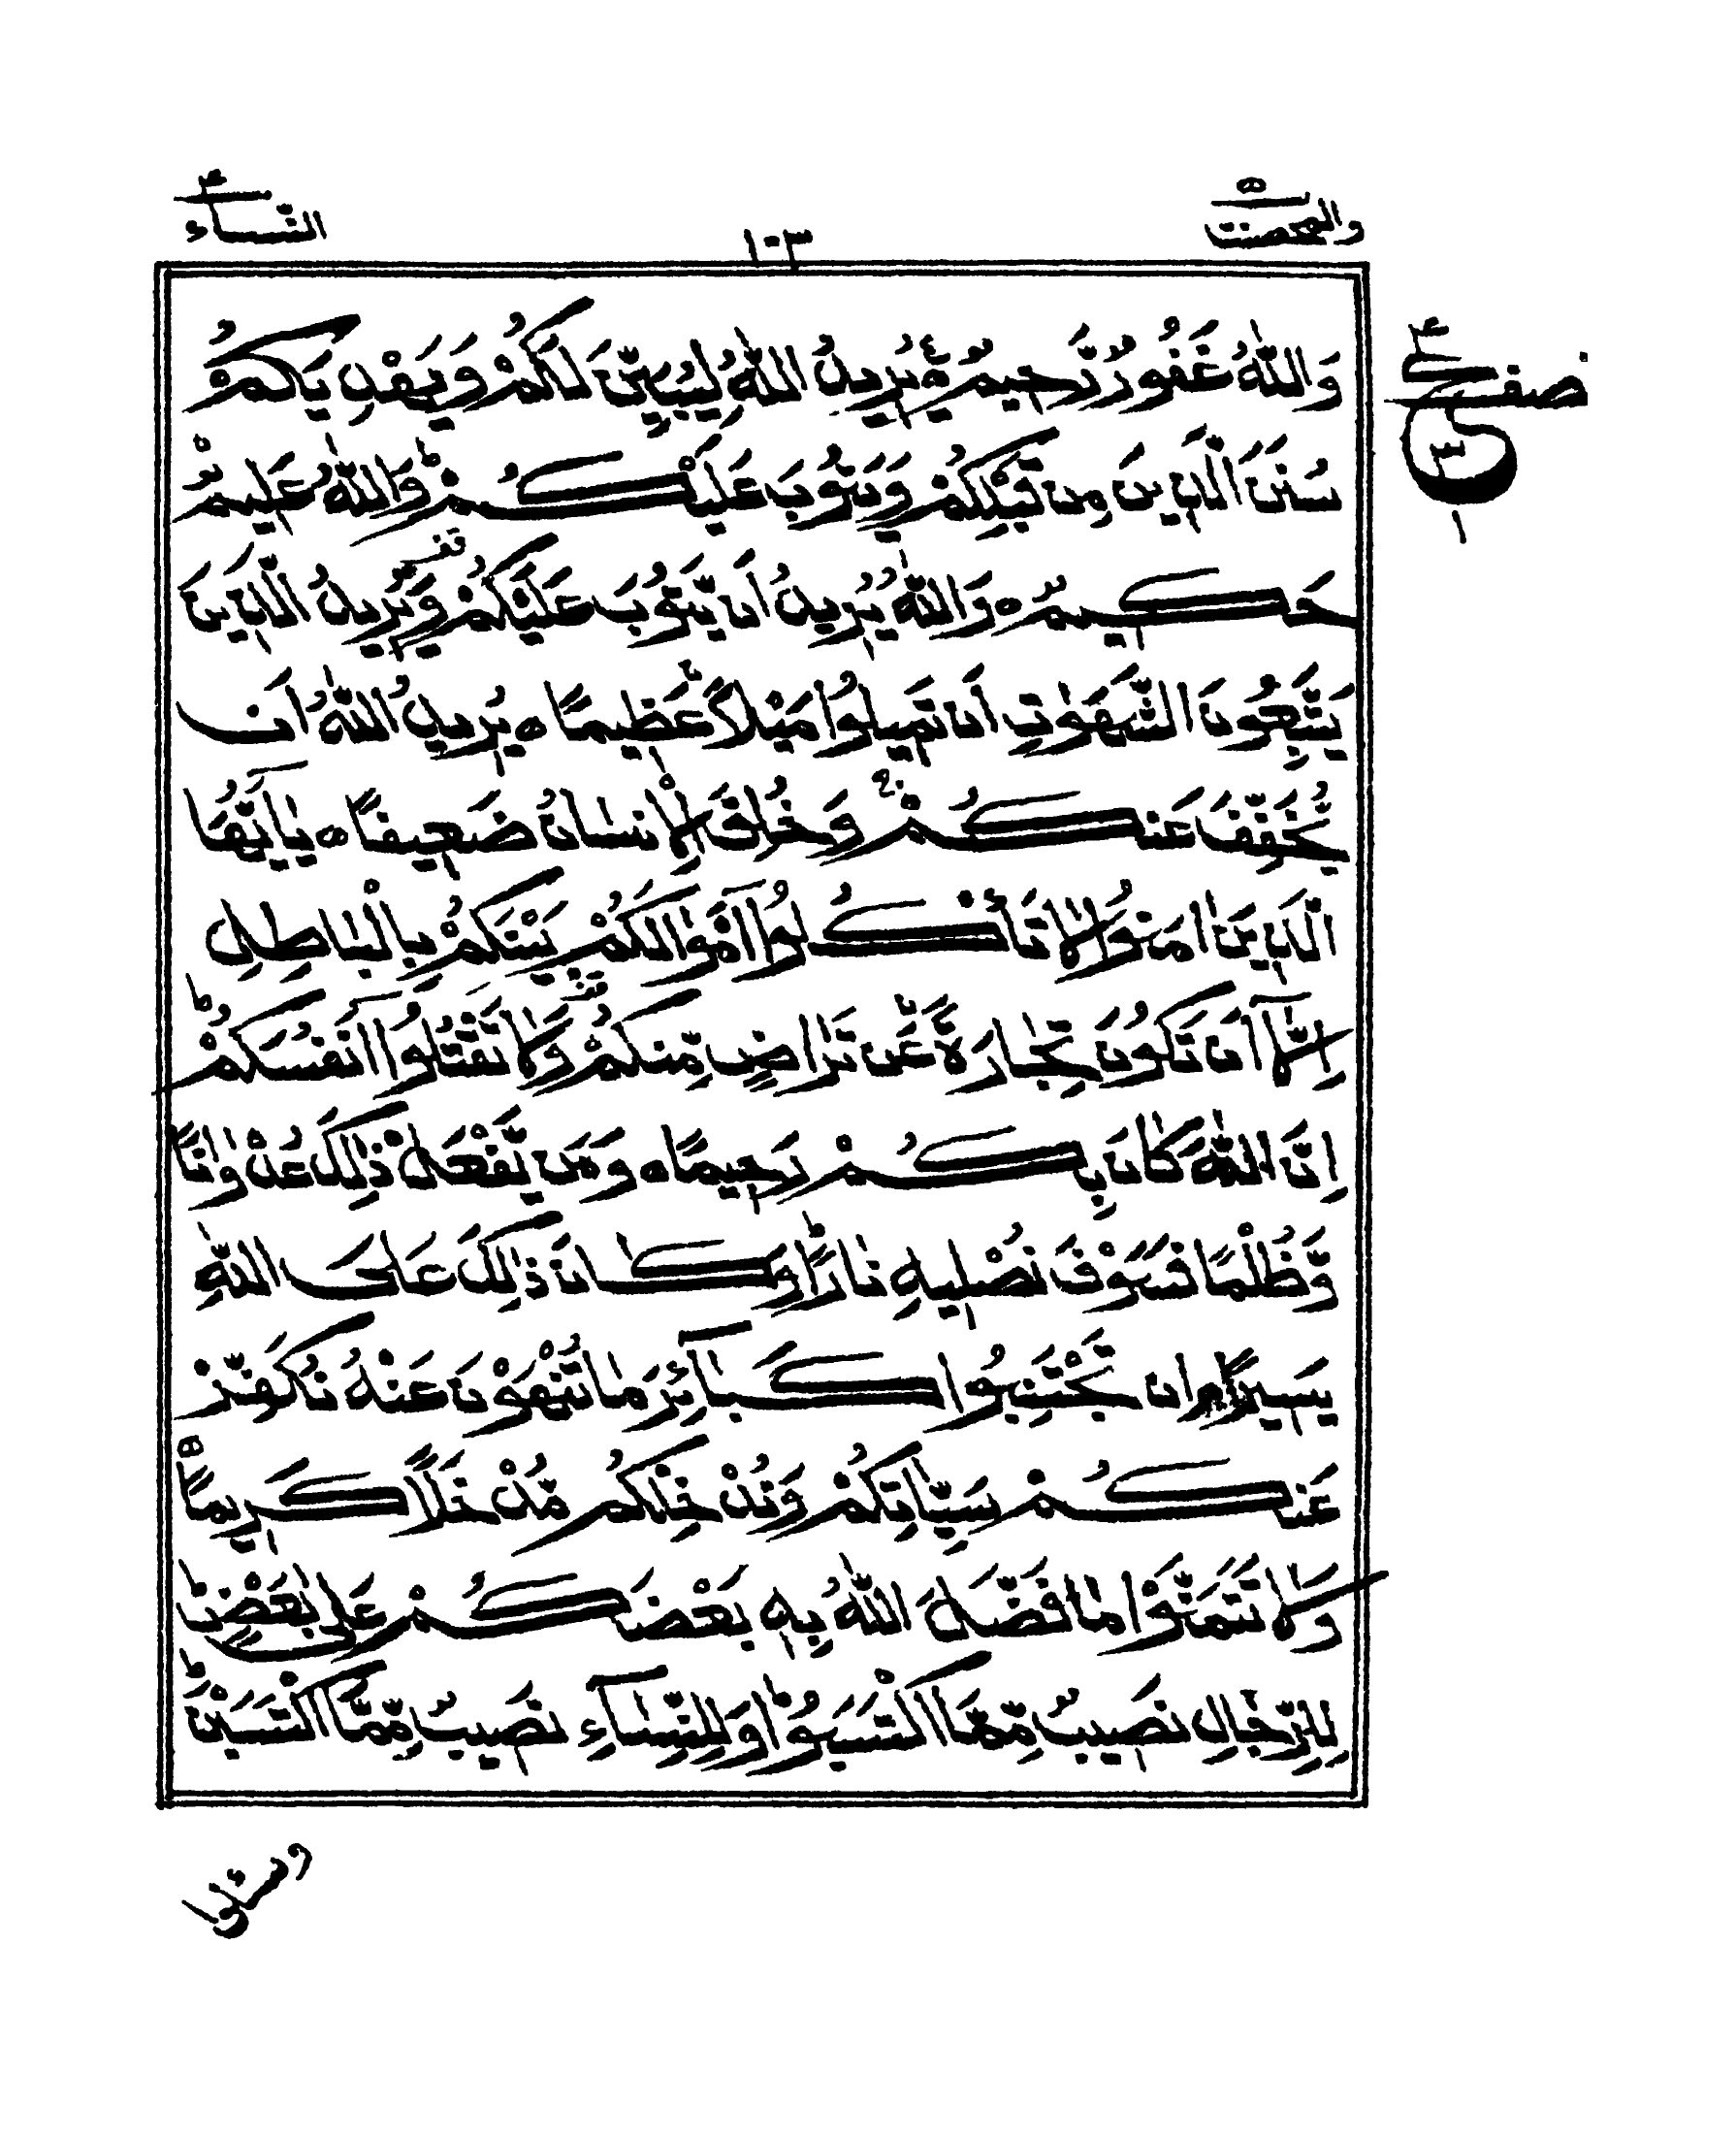 والمحصنت ٥
١٠٣
النساء ٤
وَاللّٰهُ غَفُوْرٌ رَّحِیْمٌ ۝ یُرِیْدُ اللّٰهُ لِیُبَیِّنَ لَكُمْ وَیَهْدِیَكُمْ
سُنَنَ الَّذِیْنَ مِنْ قَبْلِكُمْ وَیَتُوْبَ عَلَیْكُمْ ؕ وَاللّٰهُ عَلِیْمٌ
حَكِیْمٌ ۝ وَاللّٰهُ یُرِیْدُ اَنْ یَّتُوْبَ عَلَیْكُمْ وَیُرِیْدُ الَّذِیْنَ
یَتَّبِعُوْنَ الشَّهَوٰتِ اَنْ تَمِیْلُوْا مَیْلًا عَظِیْمًا ۝ یُرِیْدُ اللّٰهُ اَنْ
یُّخَفِّفَ عَنْكُمْ ۚ وَخُلِقَ الْاِنْسَانُ ضَعِیْفًا ۝ یٰۤاَیُّهَا
الَّذِیْنَ اٰمَنُوْا لَا تَاْكُلُوْۤا اَمْوَالَكُمْ بَیْنَكُمْ بِالْبَاطِلِ
اِلَّاۤ اَنْ تَكُوْنَ تِجَارَةً عَنْ تَرَاضٍ مِّنْكُمْ وَلَا تَقْتُلُوْۤا اَنْفُسَكُمْ ؕ
اِنَّ اللّٰهَ كَانَ بِكُمْ رَحِیْمًا ۝ وَمَنْ یَّفْعَلْ ذٰلِكَ عُدْوَانًا
وَّظُلْمًا فَسَوْفَ نُصْلِیْهِ نَارًا ؕ وَكَانَ ذٰلِكَ عَلَی اللّٰهِ
یَسِیْرًا ۝ اِنْ تَجْتَنِبُوْا كَبَآئِرَ مَا تُنْهَوْنَ عَنْهُ نُكَفِّرْ
عَنْكُمْ سَیِّاٰتِكُمْ وَنُدْخِلْكُمْ مُّدْخَلًا كَرِیْمًا ۝
وَلَا تَتَمَنَّوْا مَا فَضَّلَ اللّٰهُ بِهٖ بَعْضَكُمْ عَلٰی بَعْضٍ ؕ
لِلرِّجَالِ نَصِیْبٌ مِّمَّا اكْتَسَبُوْا ؕ وَلِلنِّسَآءِ نَصِیْبٌ مِّمَّا اكْتَسَبْنَ ؕ